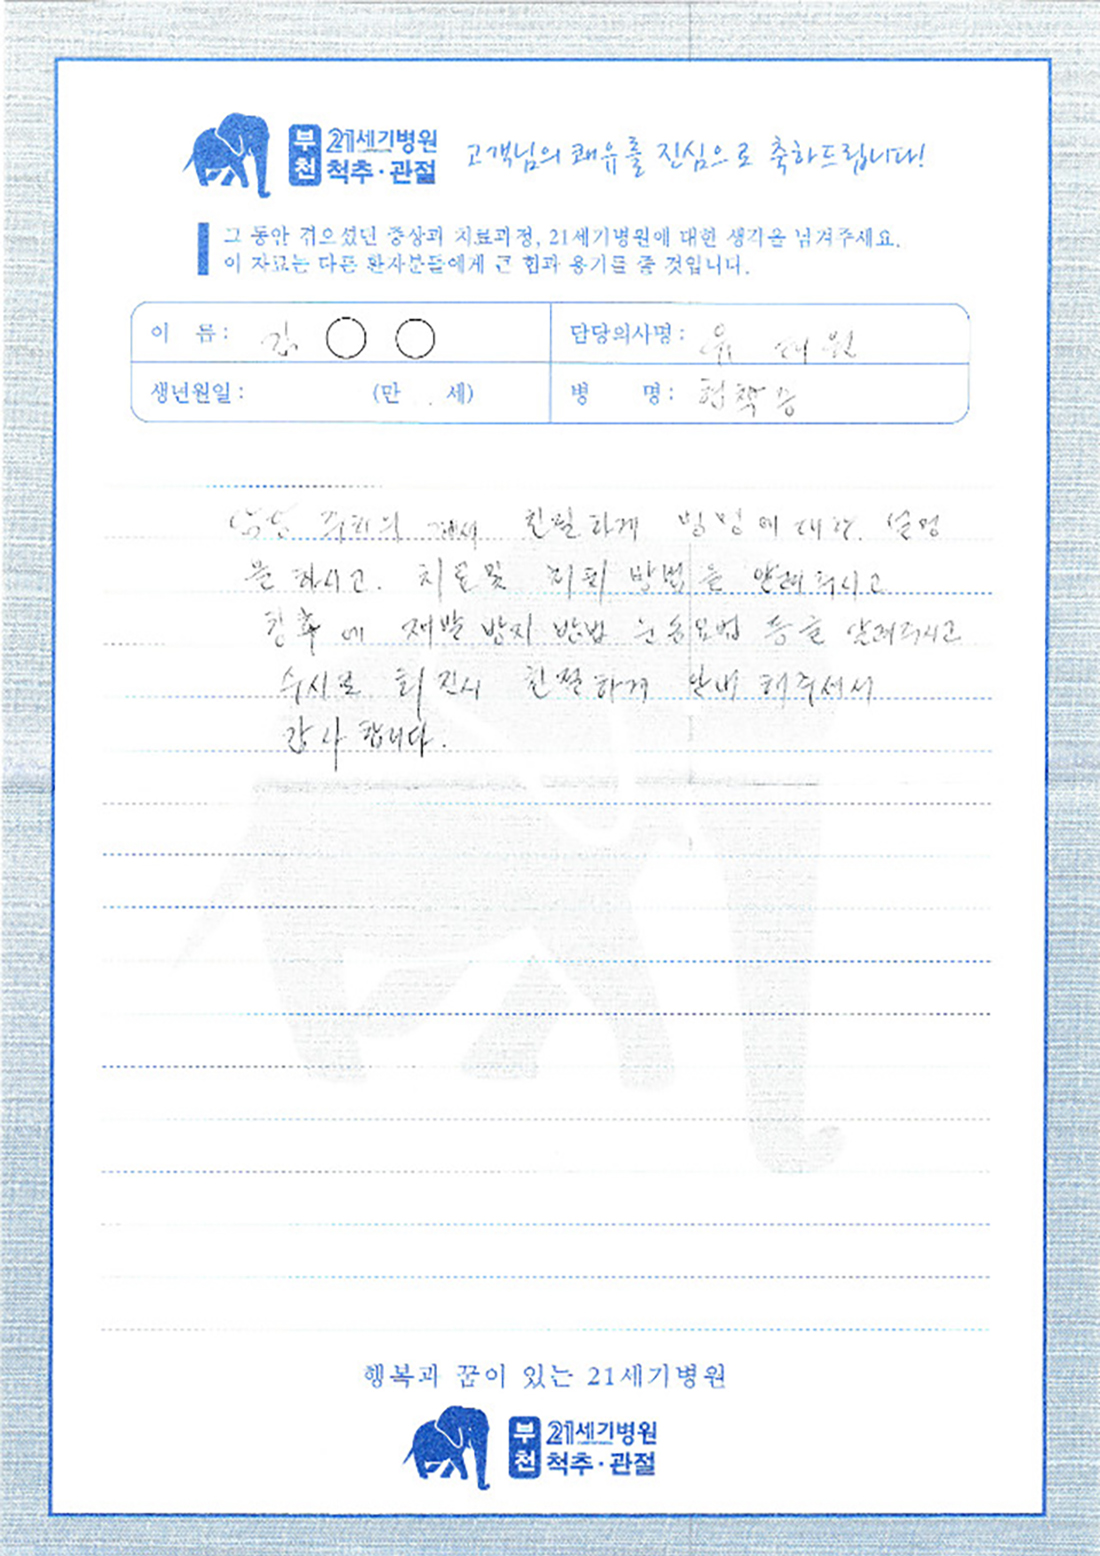 부천 21세기병원 척추·관절
고객님의 쾌유를 진심으로 축하드립니다!
그 동안 겪으셨던 증상과 치료과정, 21세기병원에 대한 생각을 남겨주세요.
이 자료는 다른 환자분들에게 큰 힘과 용기를 줄 것입니다.
이 름: 김 ○ ○
담당의사명: 유 태 원
생년월일: (만 세)
병 명: 협착증
담당 주치의 께서 친절하게 병명에 대한 설명
을 하시고. 치료및 방법을 알려주시고
향후에 재발 방지 방법 운동요법 등을 알려주시고
수시로 회진시 친절하게 안내 해주셔서
감사 합니다.
행복과 꿈이 있는 21세기병원
부천 21세기병원 척추·관절